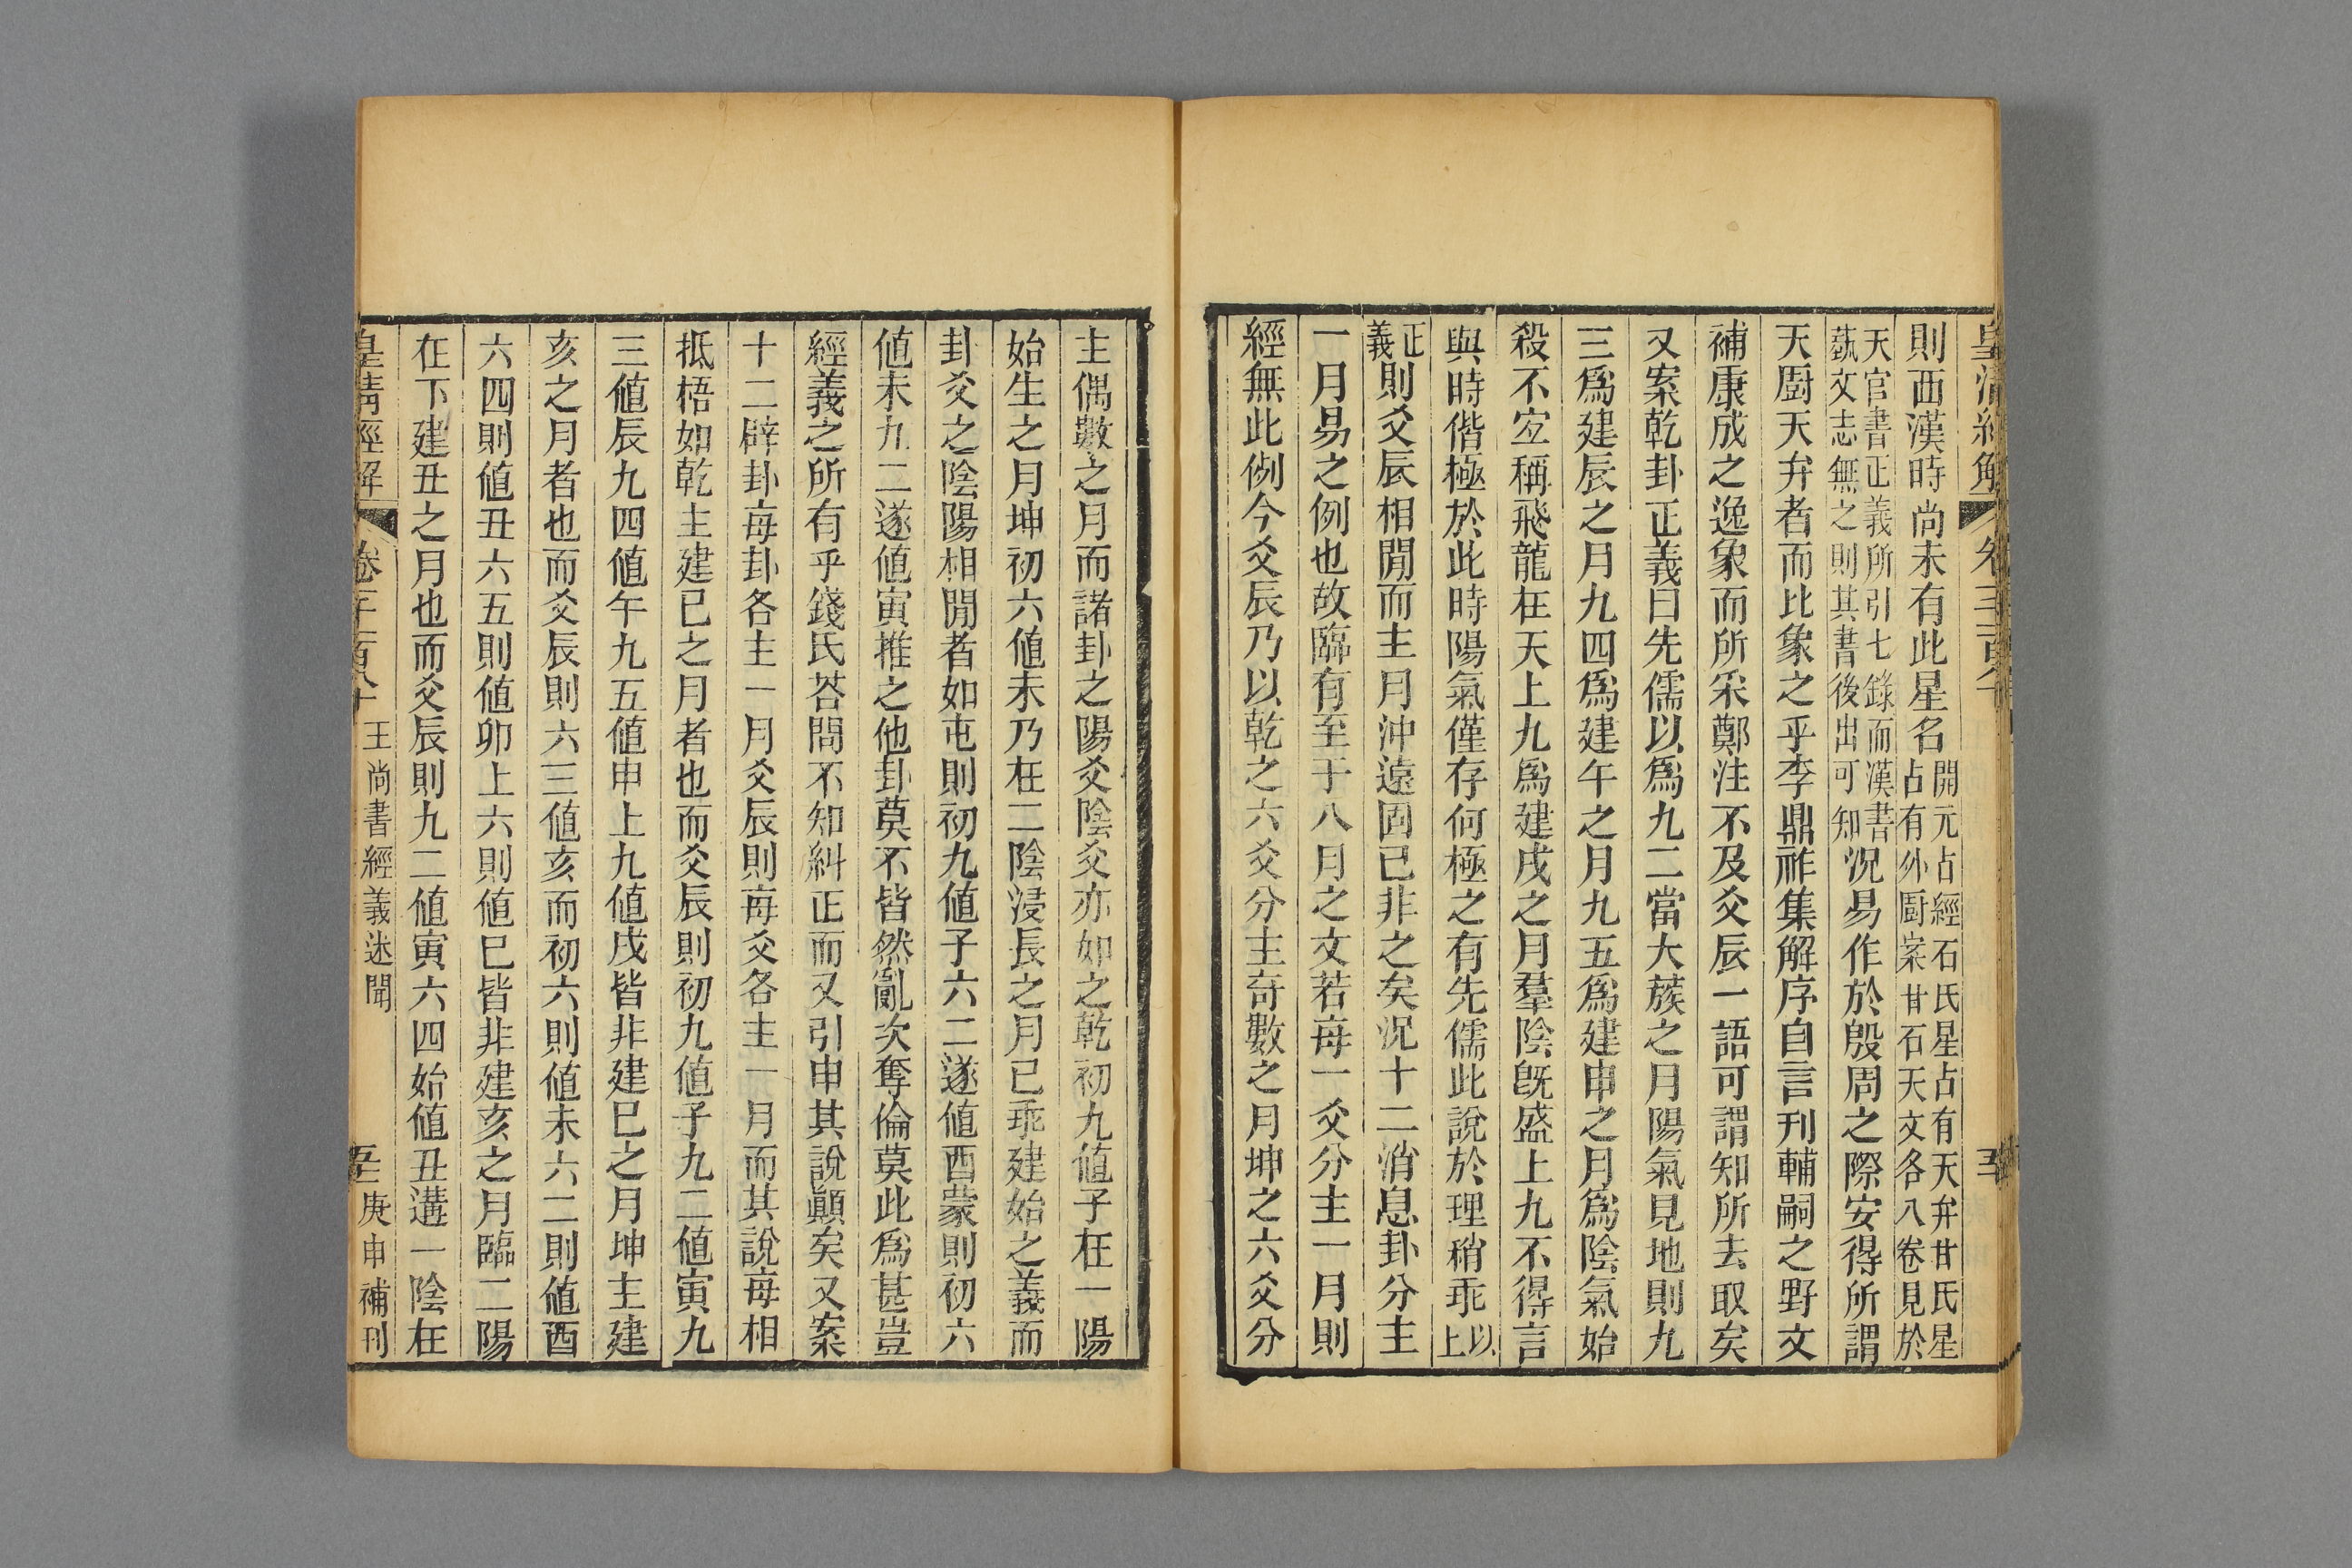 皇清經解
卷千二百八十
五
則西漢時尚未有此星名開元占經石氏星占有天弁甘氏星
占有外廚案甘石天文各八卷見於
天官書正義所引七錄而漢書
蓺文志無之則其書後出可知況易作於殷周之際安得所謂
天廚天弁者而比象之乎李鼎祚集解序自言刊輔嗣之野文
補康成之逸象而所采鄭注不及爻辰一語可謂知所去取矣
又案乾卦正義曰先儒以爲九二當大蔟之月陽氣見地則九
三爲建辰之月九四爲建午之月九五爲建申之月爲陰氣始
殺不宐稱飛龍在天上九爲建戌之月羣陰旣盛上九不得言
與時偕極於此時陽氣僅存何極之有先儒此說於理稍乖以
上
正
義則爻辰相閒而主月沖遠固已非之矣況十二消息卦分主
一月易之例也故臨有至于八月之文若每一爻分主一月則
經無此例今爻辰乃以乾之六爻分主奇數之月坤之六爻分
主偶數之月而諸卦之陽爻陰爻亦如之乾初九値子在一陽
始生之月坤初六値未乃在二陰浸長之月已乖建始之義而
卦爻之陰陽相閒者如屯則初九値子六二遂値酉蒙則初六
値未九二遂値寅推之他卦莫不皆然亂次奪倫莫此爲甚豈
經義之所有乎錢氏荅問不知糾正而又引申其說顚矣又案
十二辟卦每卦各主一月爻辰則每爻各主一月而其說每相
抵梧如乾主建巳之月者也而爻辰則初九値子九二値寅九
三値辰九四値午九五値申上九値戌皆非建巳之月坤主建
亥之月者也而爻辰則六三値亥而初六則値未六二則値酉
六四則値丑六五則値卯上六則値巳皆非建亥之月臨二陽
在下建丑之月也而爻辰則九二値寅六四始値丑遘一陰在
皇清經解
卷千二百八十
王尚書經義述聞
五
庚申補刊